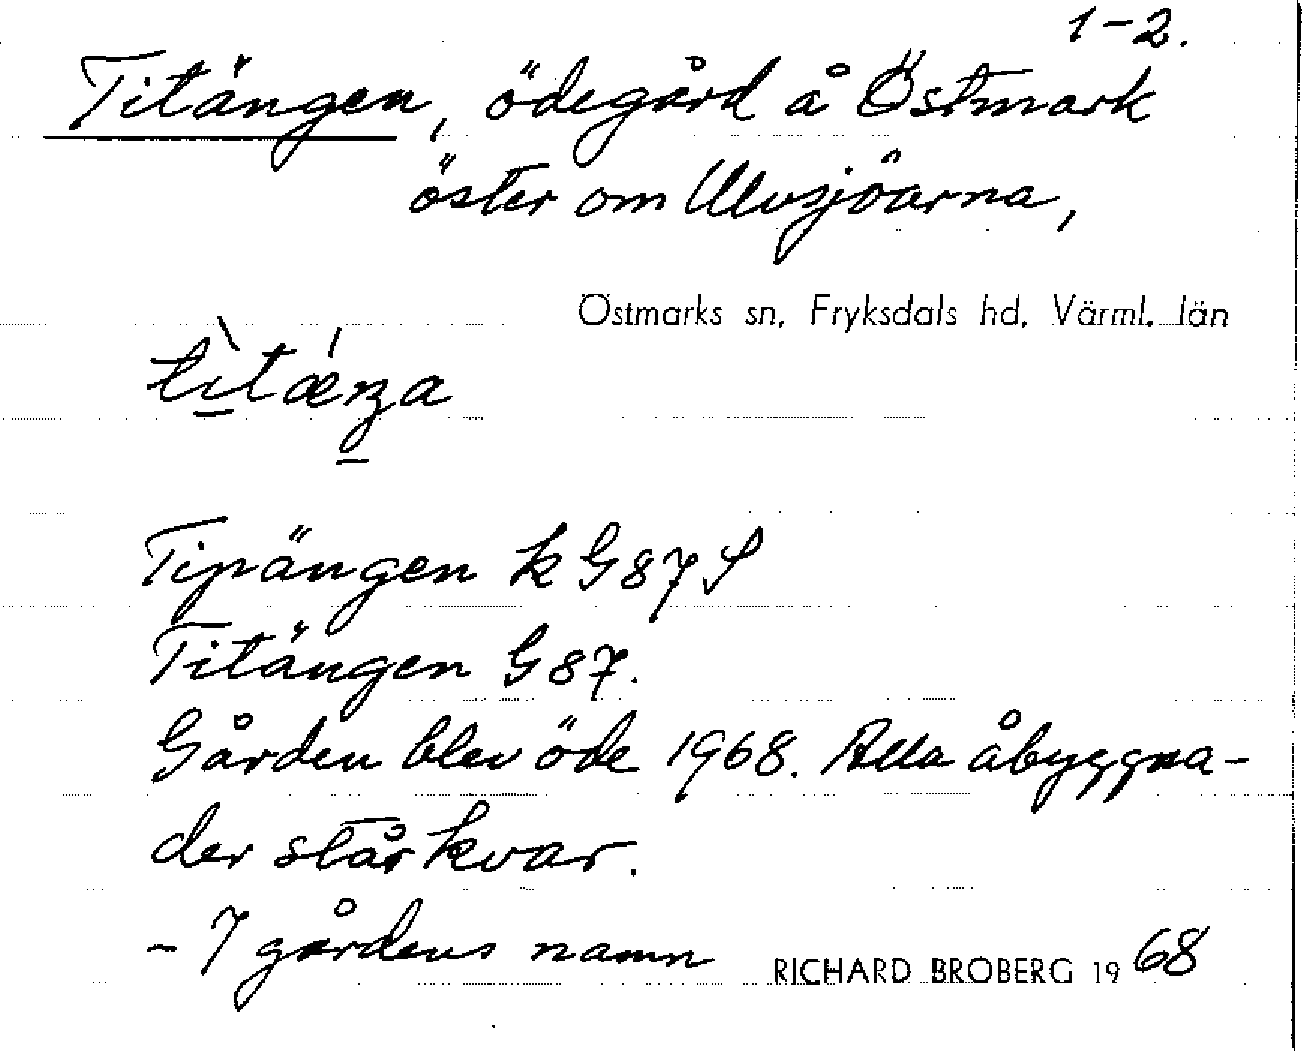 1-2.
Titängen, ödegård å Östmark
öster om Ulvsjöarna,
Östmarks sn, Fryksdals hd, Värml. län
tìtǽŋa
Tipängen k G87 S
Titängen G 87.
Gården blev öde 1968. Alla åbyggna-
der står kvar.
- I gårdens namn
RICHARD BROBERG 19 68